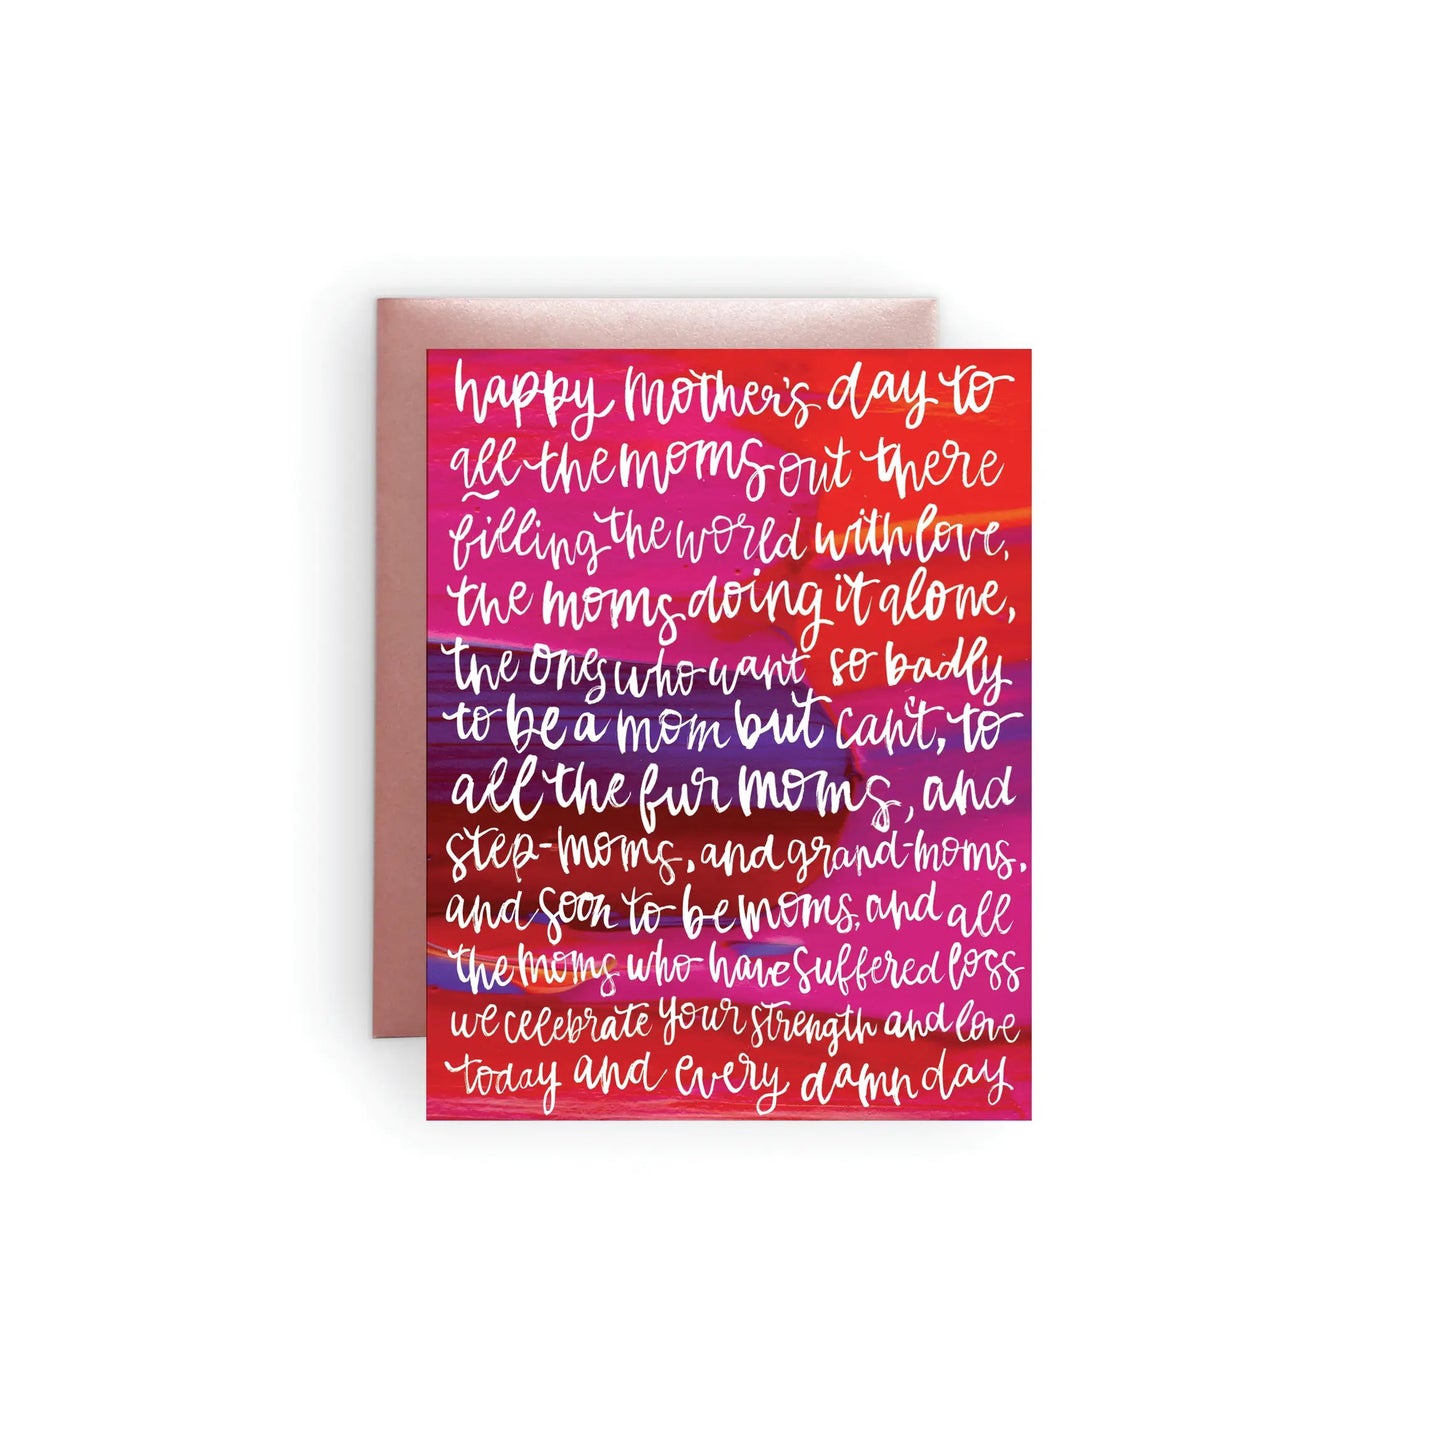 happy Mother's day to
all the moms out there
filling the world with love,
the moms doing it alone,
the ones who want so badly
to be a mom but can't, to
all the fur moms, and
step-moms, and grand-moms,
and soon to be moms, and all
the moms who have suffered loss
we celebrate your strength and love
today and every damn day